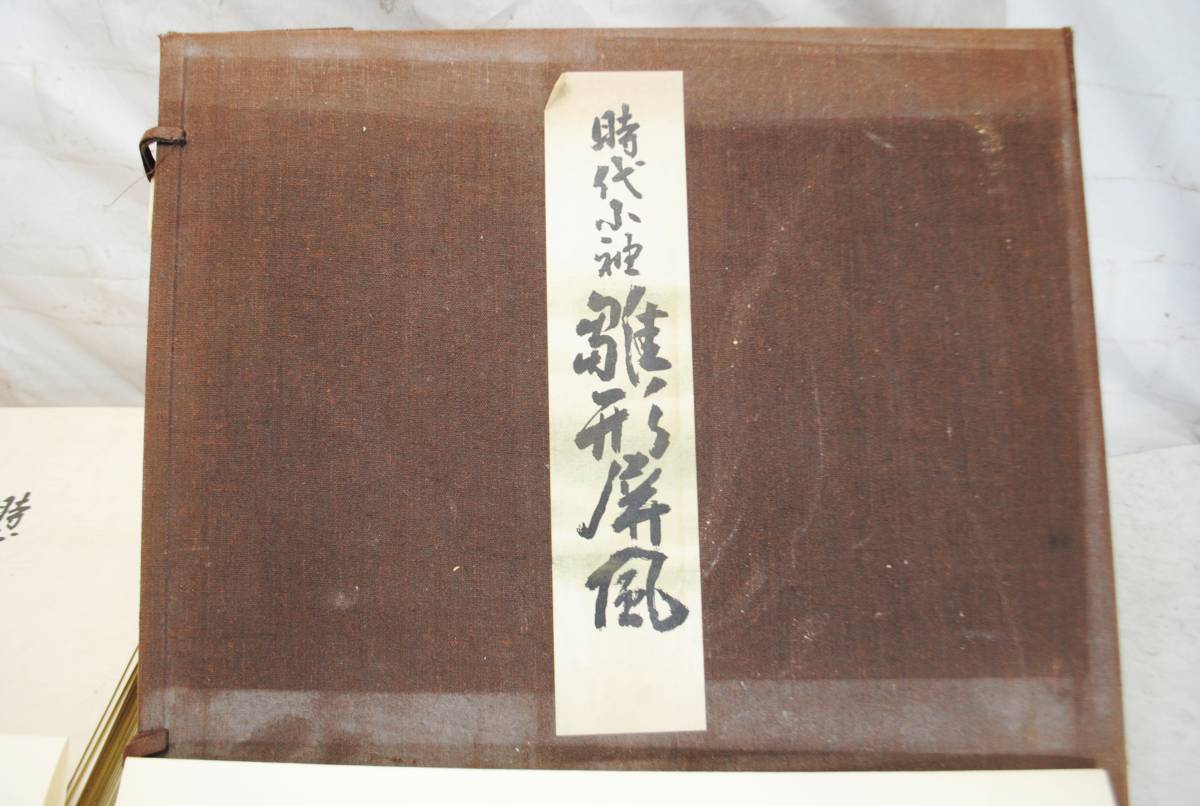 時代小袖雛形屏風
時